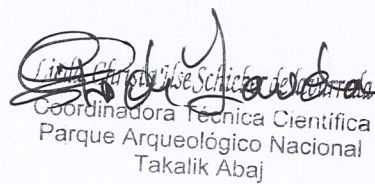 Christa Ilse Schieber de Lavarreda
Coordinadora Técnica Científica
Parque Arqueológico Nacional
Takalik Abaj